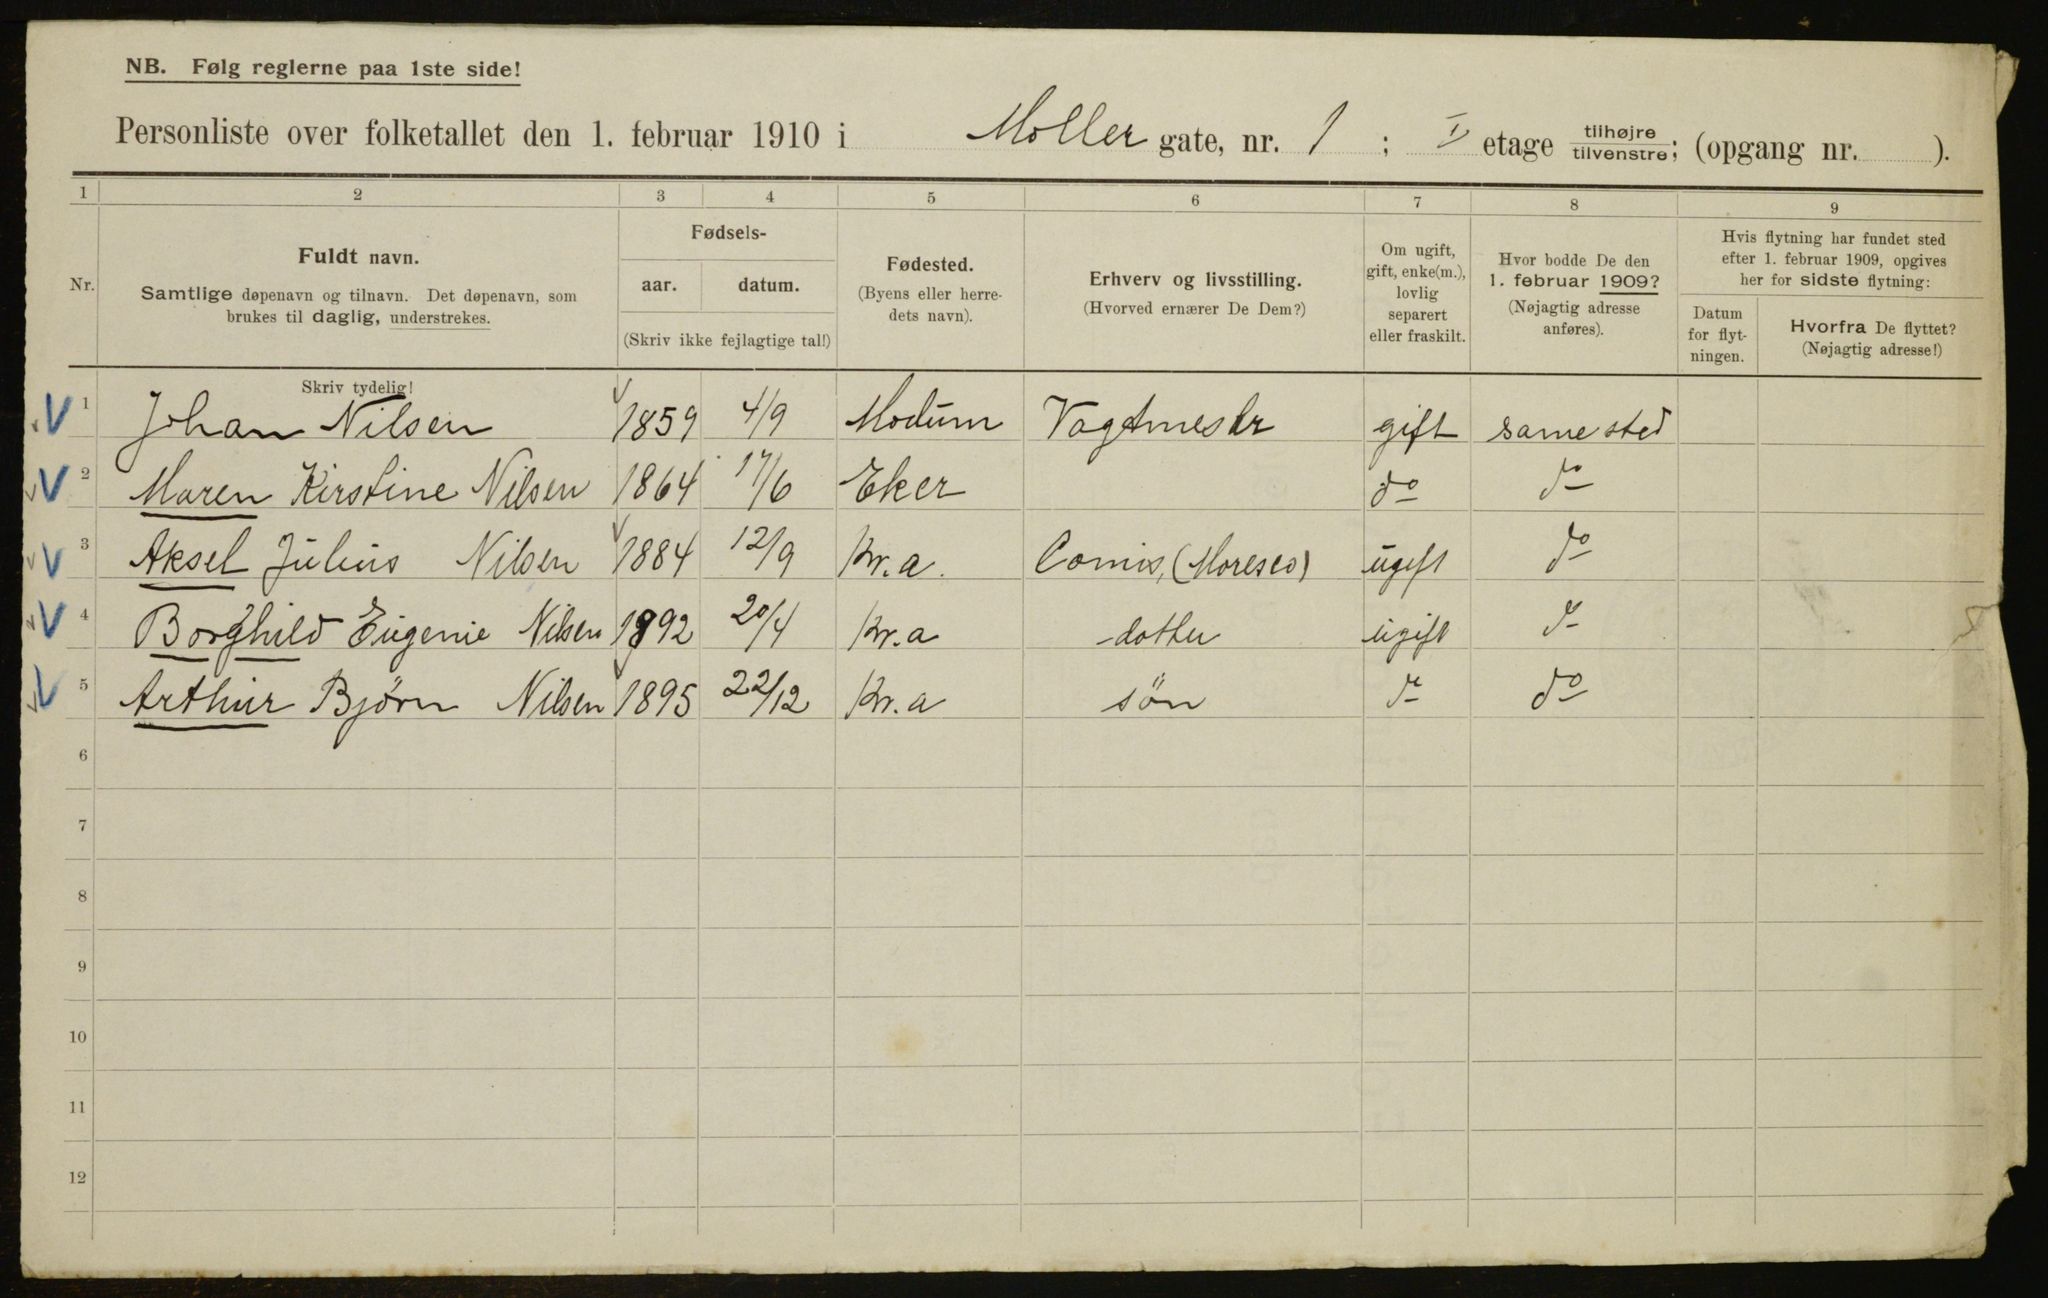 NB. Følg reglerne paa 1ste side!
Personliste over folketallet den 1. februar 1910 i Møller gate, nr. 1 ; etage tilhøjre tilvenstre; (opgang nr. ).
1 2 3 4 5 6 7 8 9
Nr.
Fuldt navn.
Samtlige døpenavn og tilnavn. Det døpenavn, som
brukes til daglig, understrekes.
Fødsels-
aar. datum.
(Skriv ikke fejlagtige tal!)
Fødested.
(Byens eller herre-
dets navn).
Erhverv og livsstilling.
(Hvorved ernærer De Dem?)
Om ugift,
gift, enke(m.),
lovlig
separert
eller fraskilt.
Hvor bodde De den
1. februar 1909?
(Nøjagtig adresse
anføres).
Hvis flytning har fundet sted
efter 1. februar 1909, opgives
her for sidste flytning:
Datum
for flyt-
ningen.
Hvorfra De flyttet?
(Nøjagtig adresse!)
Skriv tydelig!
1 Johan Nilsen 1859 4/9 Modum Vagtmestr gift samested
2 Maren Kirstine Nilsen 1864 17/6 Eker do do
3 Aksel Julius Nilsen 1884 12/9 Kr.a. Comis, (Moresco) ugift do
4 Borghild Eugenie Nilsen 1892 20/4 Kr.a datter ugift do
5 Arthur Bjørn Nilsen 1895 22/12 Kr.a søn do do
6
7
8
9
10
11
12